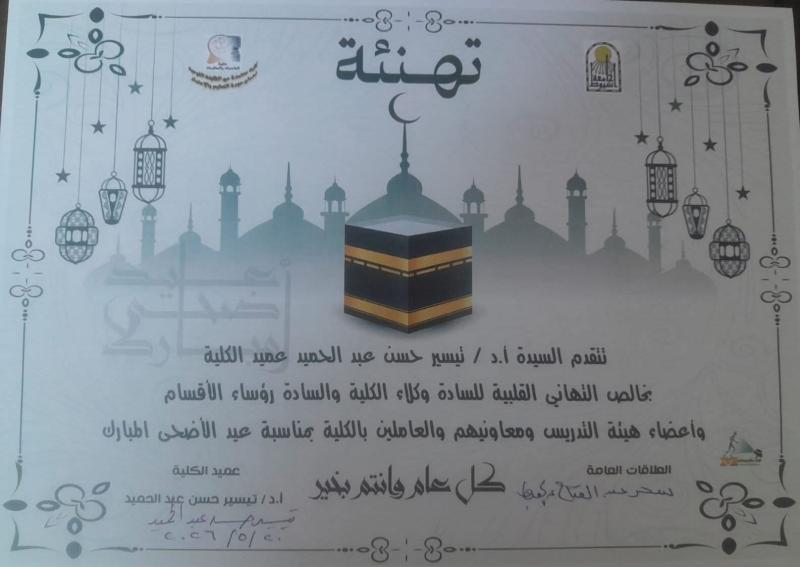 تهنئة
جامعة أسيوط
أعياد
أضحى
مبارك
تتقدم السيدة أ.د / تيسير حسن عبد الحميد عميد الكلية
بخالص التهاني القلبية للسادة وكلاء الكلية والسادة رؤساء الأقسام
وأعضاء هيئة التدريس ومعاونيهم والعاملين بالكلية بمناسبة عيد الأضحى المبارك
العلاقات العامة
عميد الكلية
كل عام وانتم بخير
أ.د/ تيسير حسن عبد الحميد
تيسير حسن عبد الحميد
٢٠٢٦/٥/٢٠